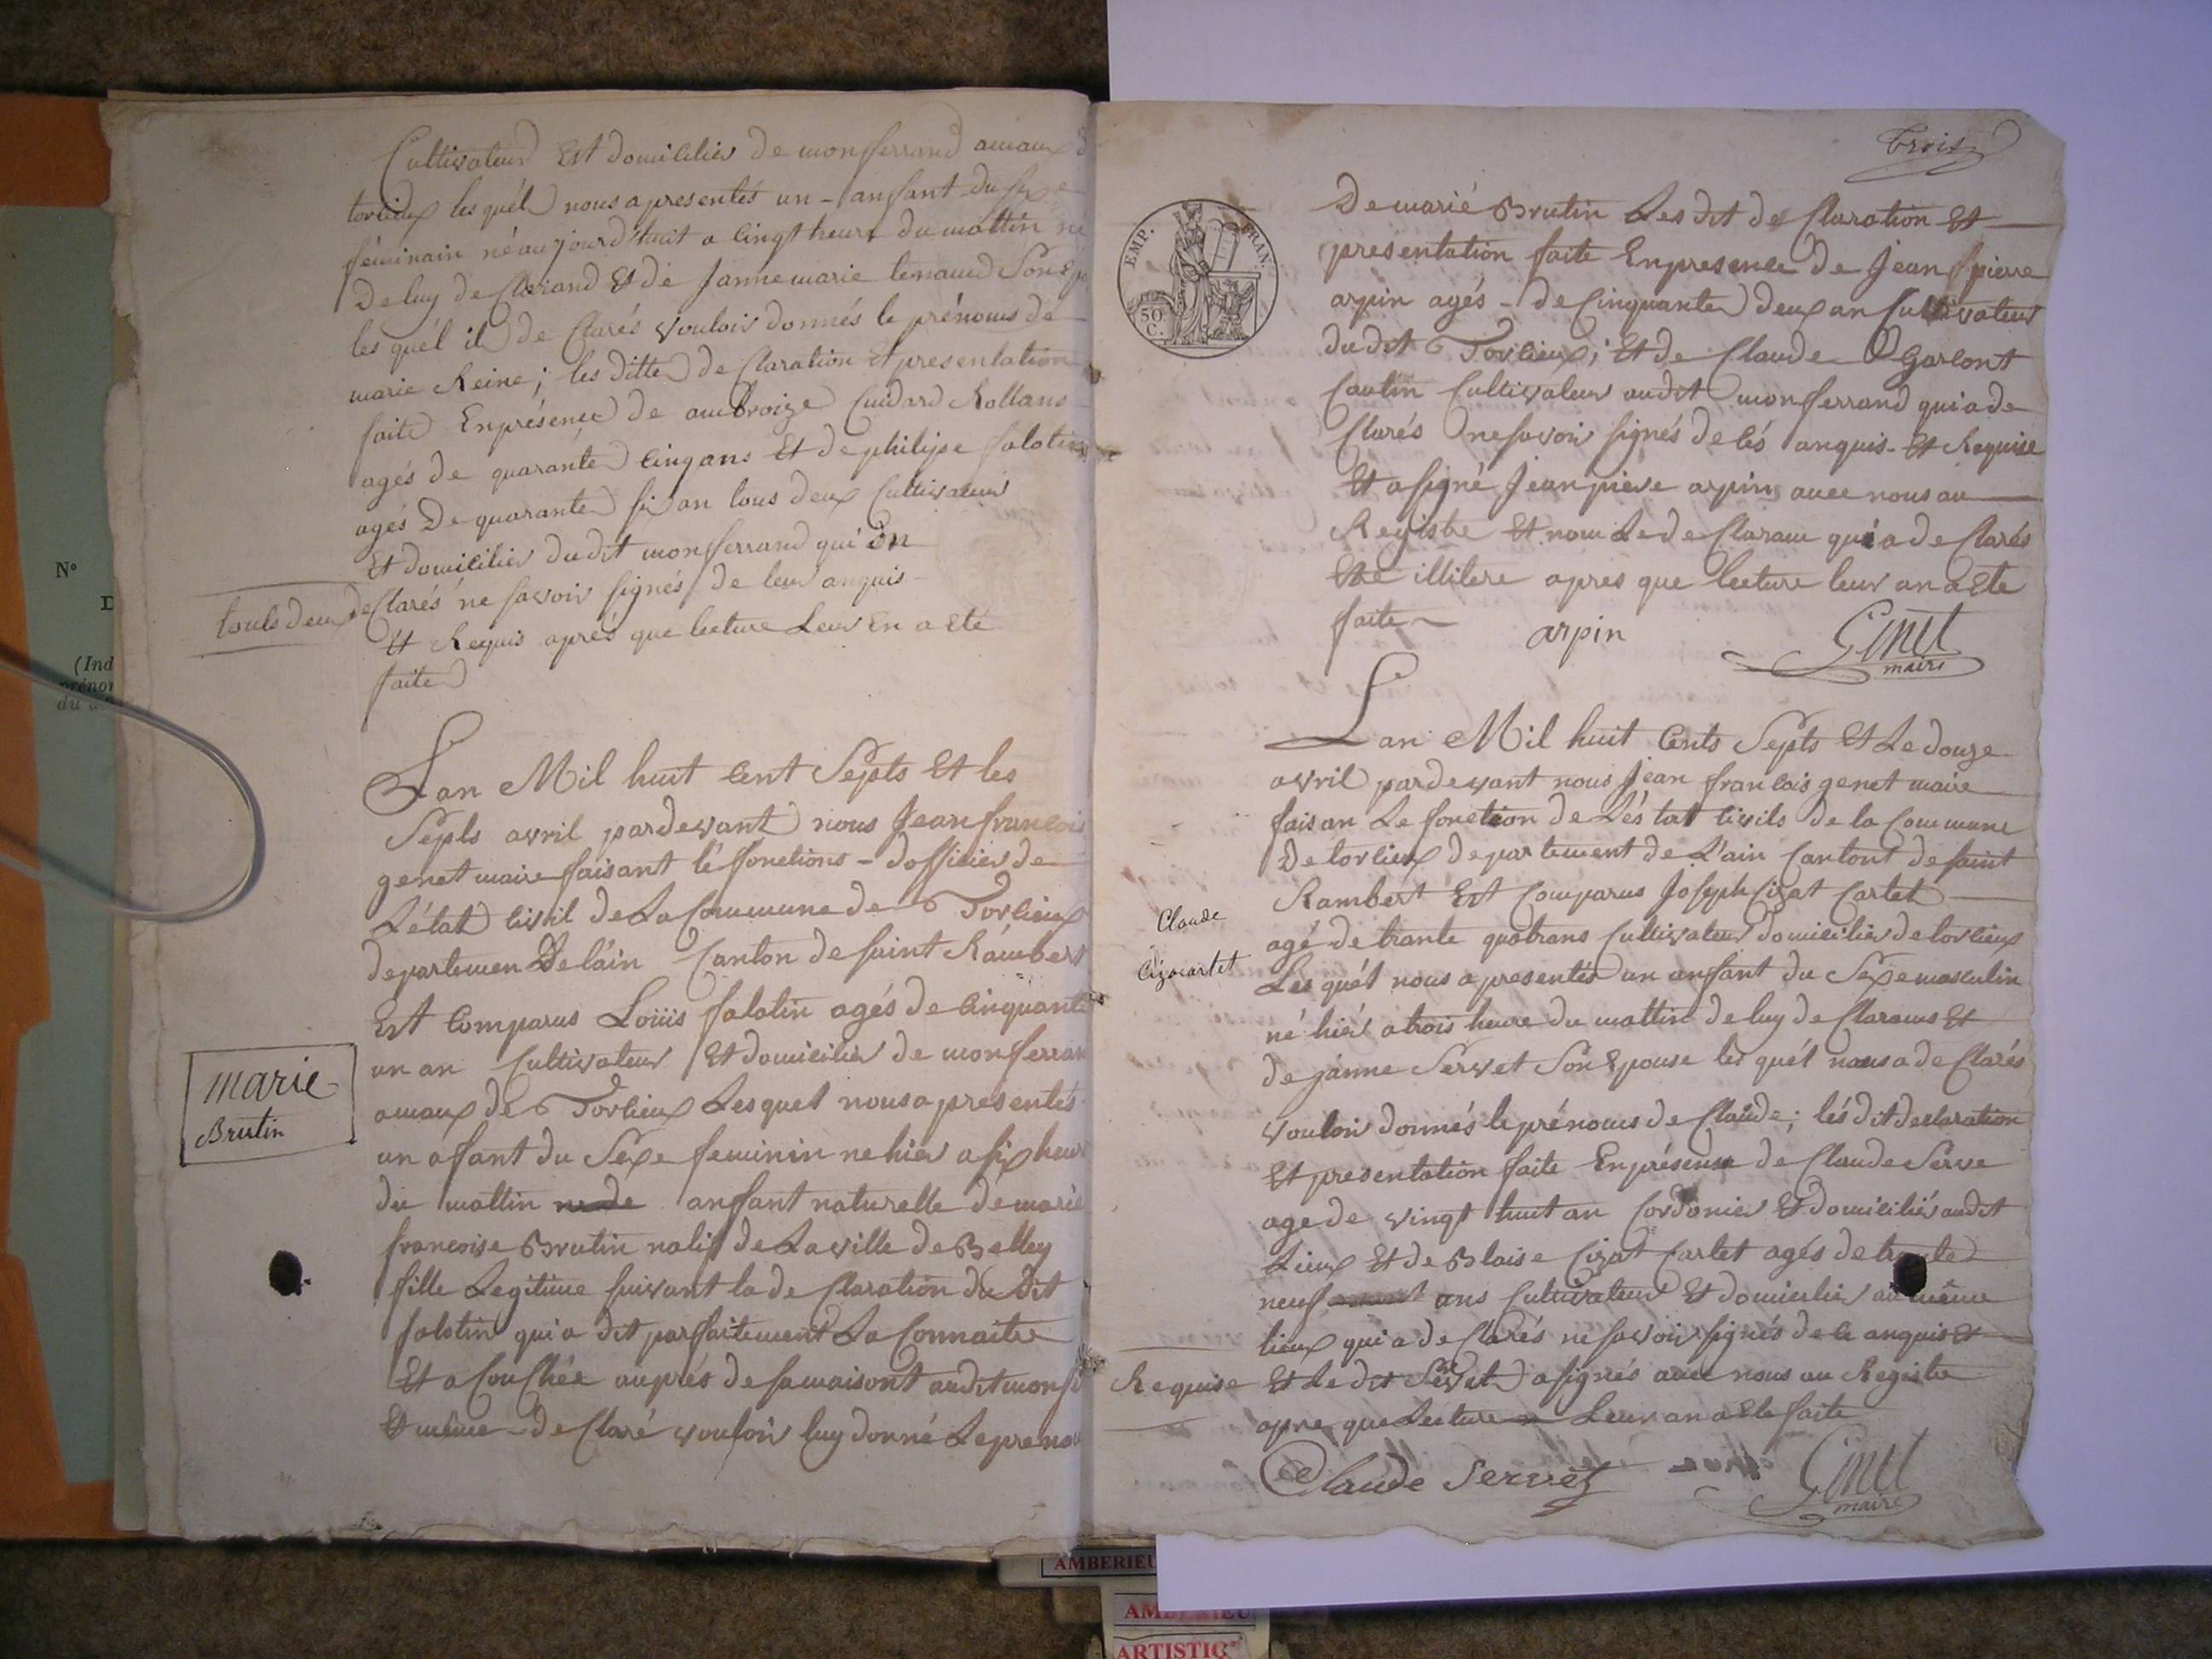 Cultivateur Est domicilier de monferrand amaux d
torlieux les quél nous apresentés un - anfant du sexe
féminin né aujourd'huit a Cinqt heure du mattin né
De luy de Clarand Et de Janne marie tenaud Son Ep
les quél il de Clarés Vouloir donnés le prénoms de
marie Reine; les ditte de Claration Et presentation
faite Enprésence de ambroize Cuidard Rollans
agés de quarante Cinq ans Et de philipe falotin
agés De quarante six an tous deux Cultivateur
Et domicilier dudit monferrand qui on
touls deux de Clarés ne savoir signés de leur anquis
Et Requis aprés que lecture Leur En a Eté
faite
Lan Mil huit Cent Septs Et les
Septs avril pardevant nous Jean francois
genet maire faisant lé fonctions - dofficier de
Létat Civil de La Commune de Torlieux
departemen De láin Canton de Saint Rambert
Est Comparus Loüis falotin agés de Cinquante
un an Cultivateur Et domicilier de monferran
amaux de Torlieux Lesquel nous apresentés
marie
Brutin
un afant du Sexe feminin ne hier a six heur
du mattin anfant naturelle de marie
francoise Brutin natif de La ville de Belley
fille Legitime suivant la de Claration du Dit
falotin qui a dit parfaitement La Connaitre
Et a Couchée auprés de sa maisont audit monf
Et même - de Claré vouloir luy donné Le preno
Trois
EMP. FRAN.
50 C.
De marié Brutin Les dit de Claration Et
presentation faite Enpresence de Jean pierre
arpin agés - de Cinquante deux an Cultivateur
dudit Torlieux; Et de Claude Garlont
Cautin Cultivateur audit monferrand qui a de
Clarés ne savoir signés de lés anquis - Et Requise
Et a signé Jean piére arpin avec nous au
Registre Et nom Le de Claram qui a de Clarés
Etre illitere apres que lecture leur an a Ete
faite
arpin
Genet
maire
Lan Mil huit Cents Septs Et Le douze
avril pardevant nous Jean francois genet maire
faisan Le fonction de Lés tat Civils de la Commune
De torlieux departement de L'ain Cantont de saint
Rambert Est Comparus Joseph Cizat Cartet
Claude
Cizocartet
agé de trante quatrans Cultivateur domicilier de torlieux
Les quél nous a presentés un anfant du Sexe masculin
né hiér a trois heure du mattin de luy de Clarams Et
de janne Servet Son Epouse les quél nous a de Clarés
vouloir donnés le prénoms de Claude; lés dit declaration
Et presentation faite Enprésense de Claude Serve
age de vingt huit an Cordonier Et domicilié audit
Lieux Et de Blaise Cizat Cartet agés de trante
neuf ans Cultivateur Et domicilier au même
lieux qui a de Clarés ne savoir signés de le anquis Et
Requise Et Le dit Servet a signés avec nous au Registre
apre que Lecture Leur an a Ete faite
Claude Servet
Genet
maire
N°
(Ind
prénom
AMBERIEU
AMBERIEU
ARTISTIQ